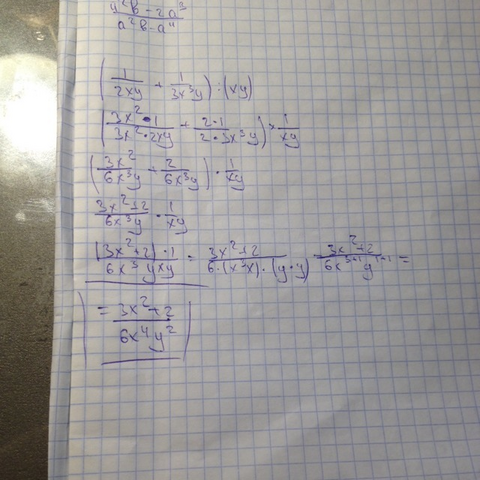 a²b - a⁴
(1/2xy + 1/3x³y) : (xy)
(3x²·1/3x²·2xy + 2·1/2·3x³y) · 1/xy
(3x²/6x³y + 2/6x³y) · 1/xy
3x²+2/6x³y · 1/xy
(3x²+2)·1/6x³yxy = 3x²+2/6·(x³x)·(y·y) = 3x²+2/6x³⁺¹y¹⁺¹ =
= 3x²+2/6x⁴y²